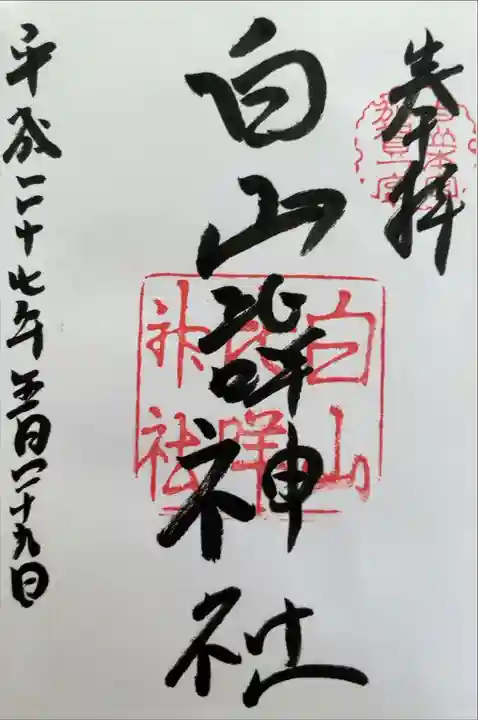 奉拝
白山比咩神社
白山
比咩
神社
平成二十七年五月二十九日